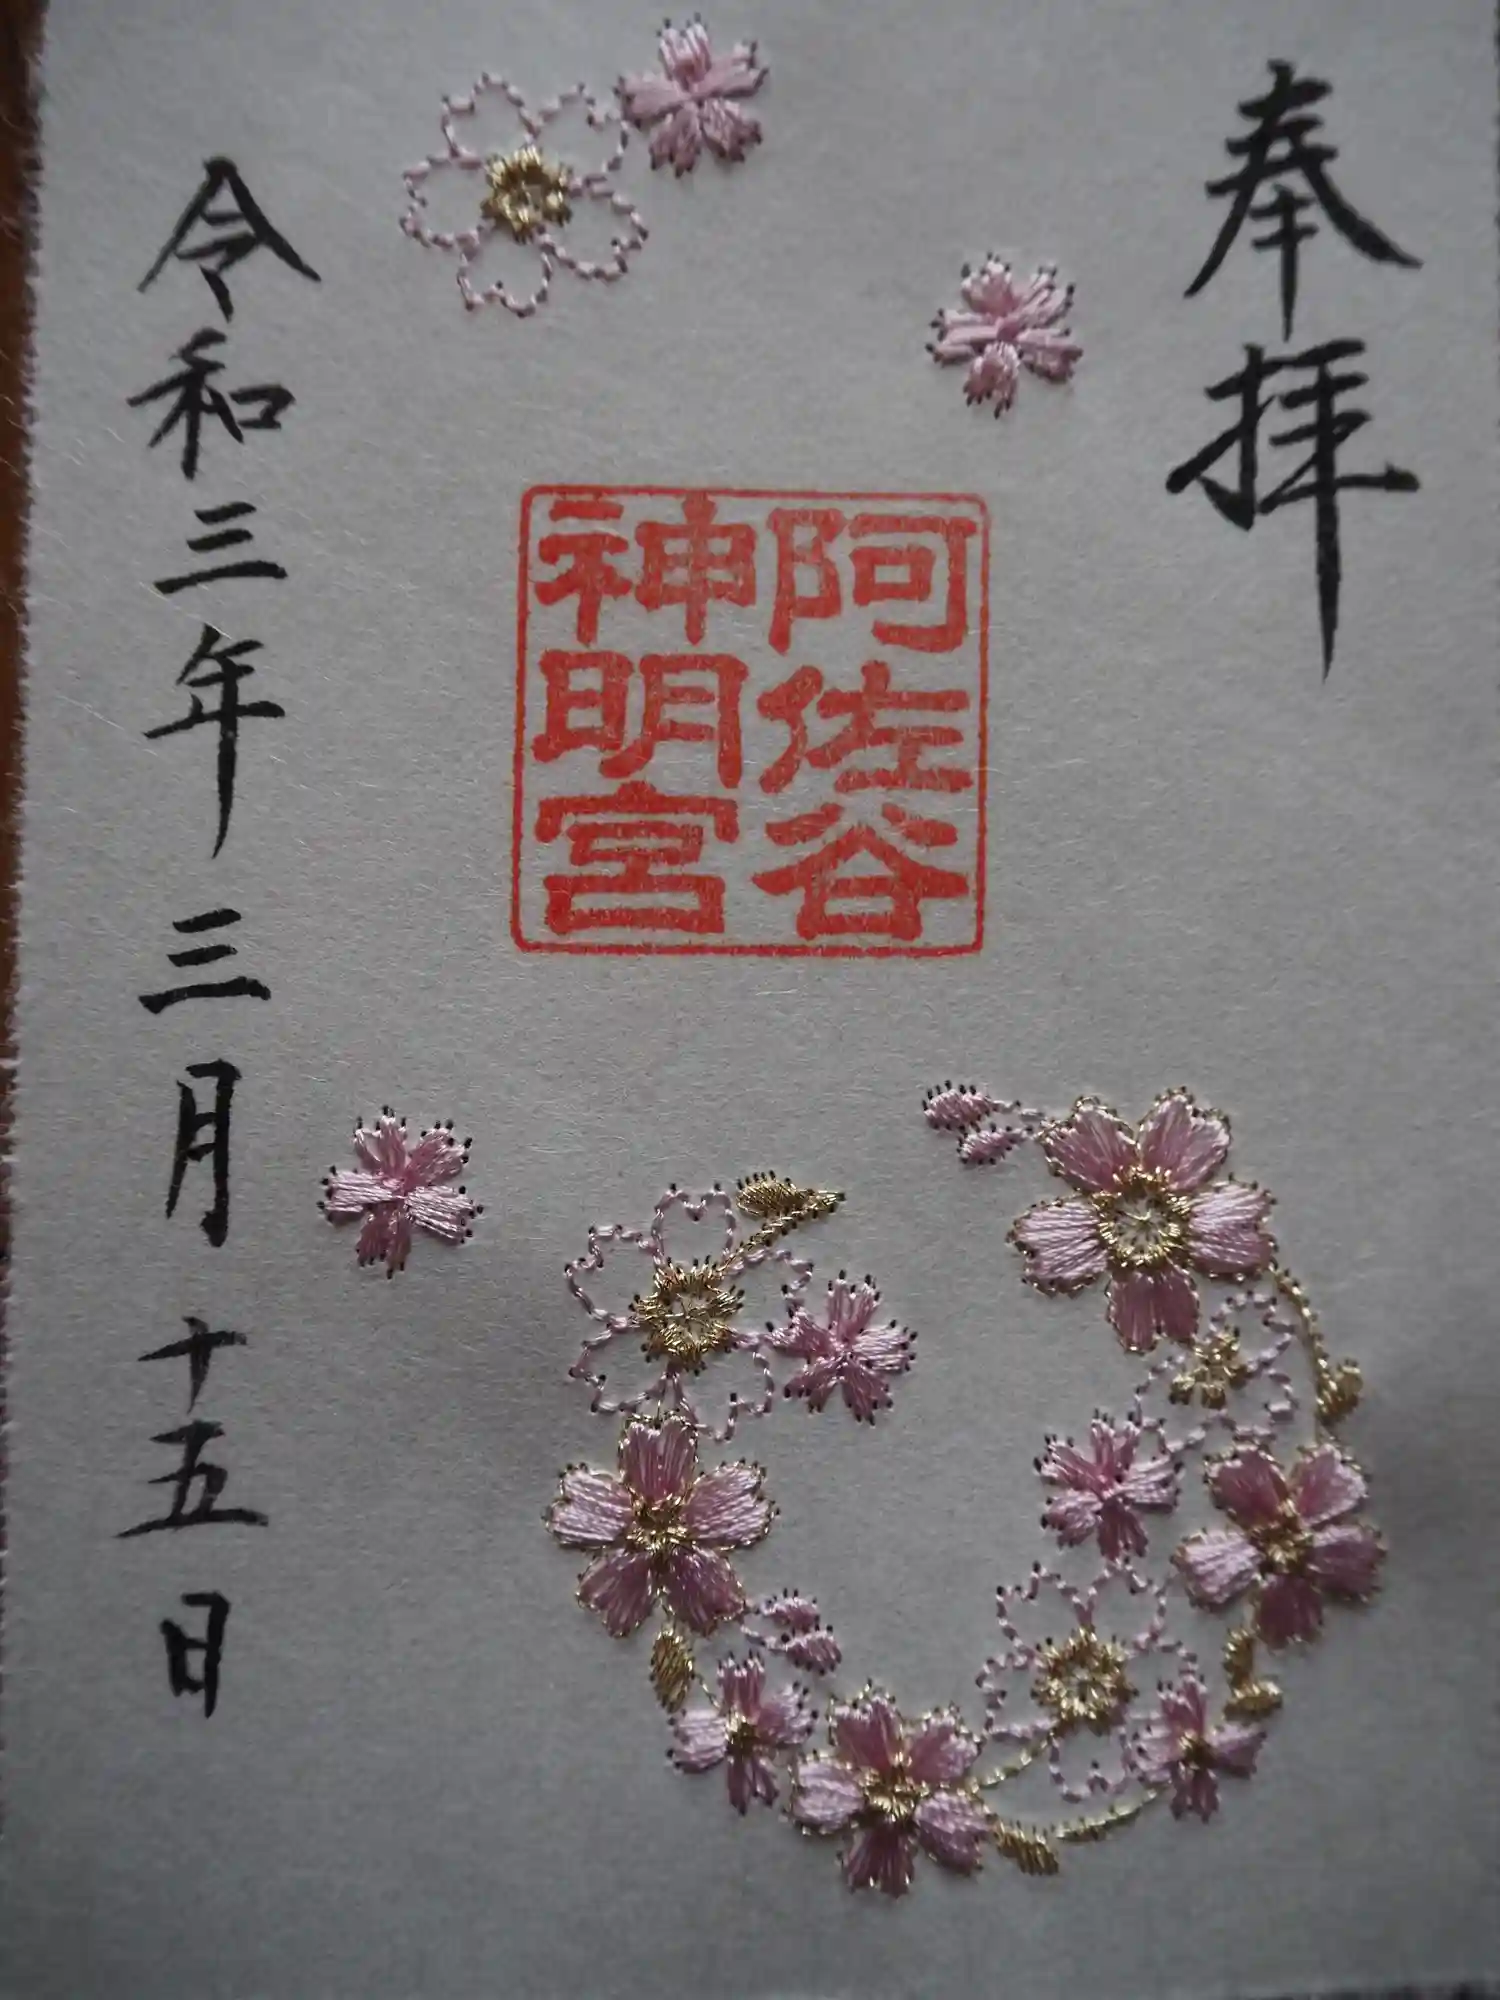 奉拝
阿佐谷
神明宮
令和三年三月十五日